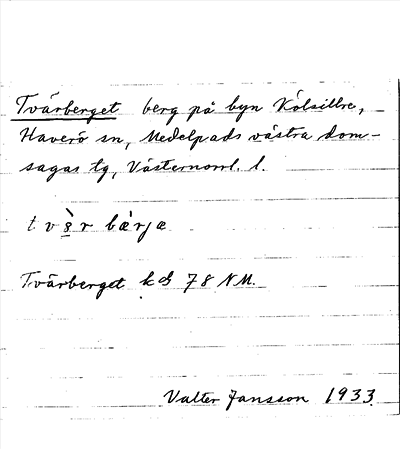 Tvärberget berg på byn Kölsillre,
Haverö sn, Medelpads västra dom-
sagas tg, Västernorrl. l.
tvèr bærjæ
Tvärberget kbl 78 NM.
Valter Jansson 1933.